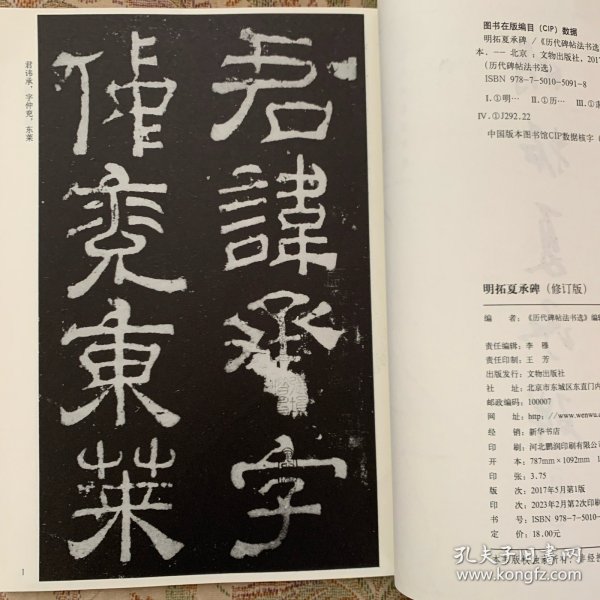 君讳承，字仲兖，东莱
君諱承字
仲兖東萊
1
图书在版编目（CIP）数据
明拓夏承碑 / 《历代碑帖法书选
本. -- 北京 : 文物出版社, 2017
（历代碑帖法书选）
ISBN 978-7-5010-5091-8
Ⅰ.①明… Ⅱ.①历… Ⅲ.①
Ⅳ.①J292.22
中国版本图书馆CIP数据核字（
明拓夏承碑（修订版）
编 者：《历代碑帖法书选》编辑
责任编辑：李 穆
责任印制：王 芳
出版发行：文物出版社
社 址：北京市东城区东直门内
邮政编码：100007
网 址：http://www.wenwu.c
经 销：新华书店
印 刷：河北鹏润印刷有限公司
开 本：787mm×1092mm 1
印 张：3.75
版 次：2017年5月第1版
印 次：2023年2月第2次印刷
书 号：ISBN 978-7-5010-
定 价：18.00元
孔夫子旧书网
www.kongfz.com